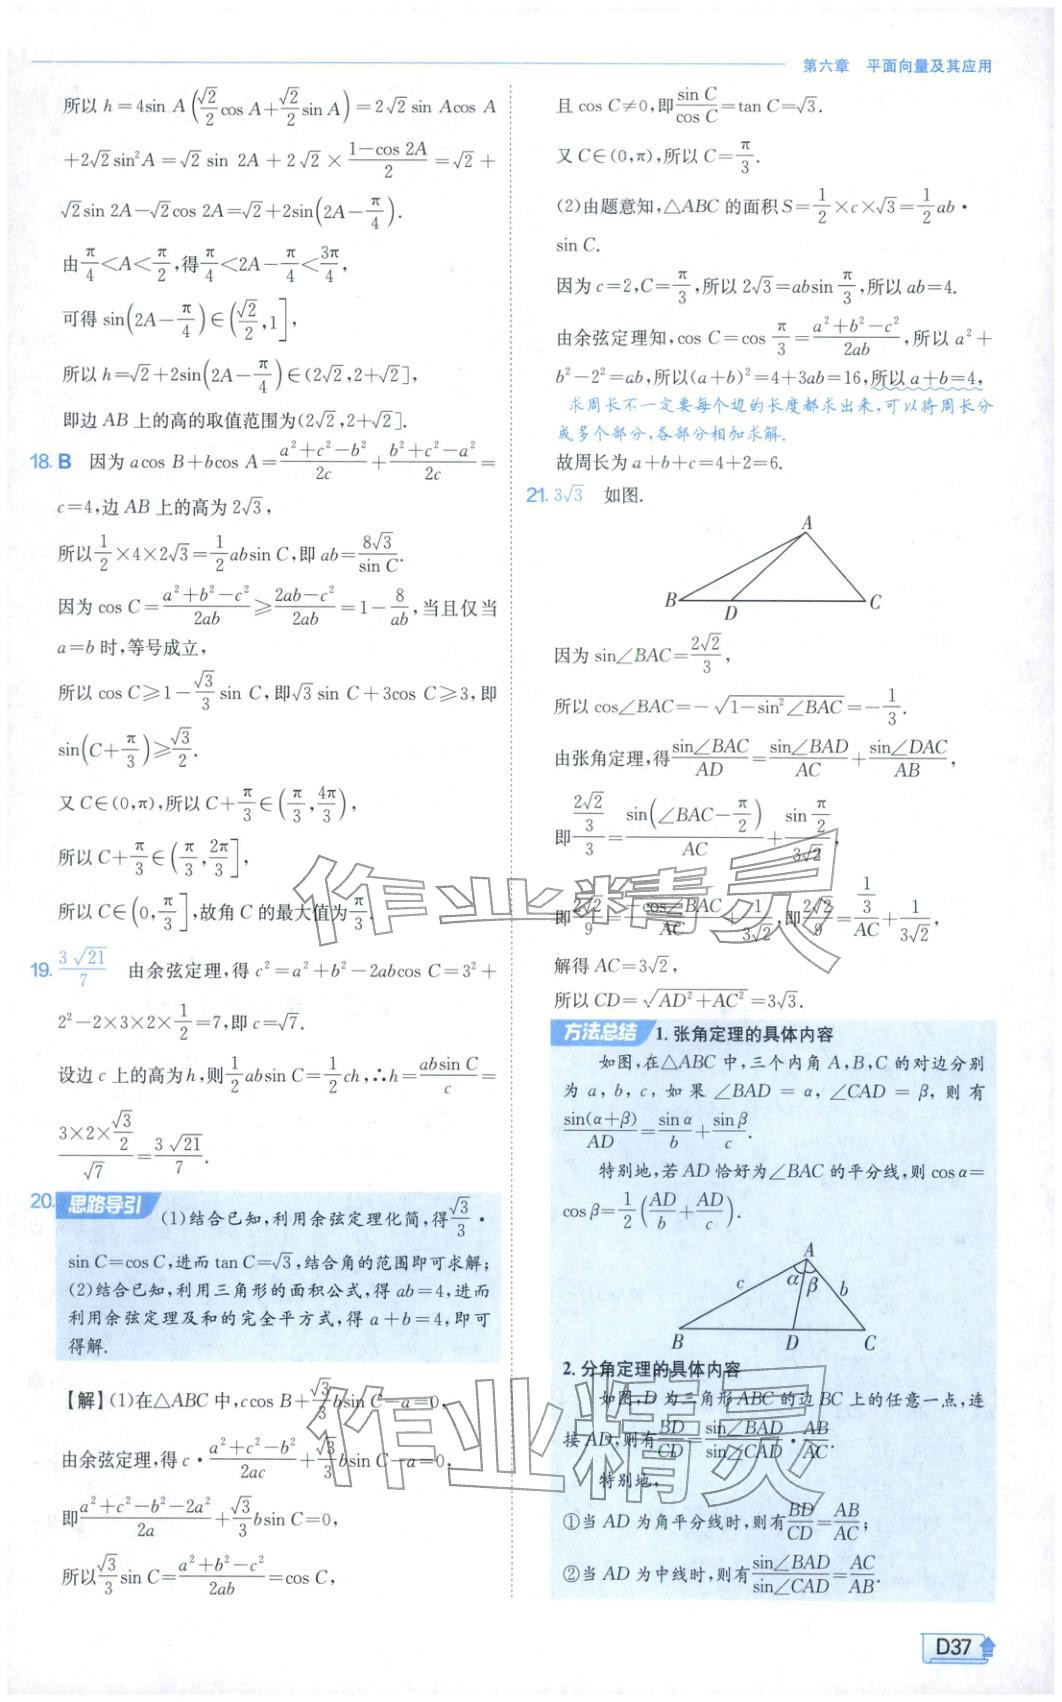 第六章 平面向量及其应用
所以 h=4sin A(√2/2 cos A+√2/2 sin A)=2√2 sin Acos A
+2√2 sin²A=√2 sin 2A+2√2×(1-cos 2A)/2=√2+
√2 sin 2A-√2 cos 2A=√2+2sin(2A-π/4).
由π/4<A<π/2,得π/4<2A-π/4<3π/4,
可得 sin(2A-π/4)∈(√2/2,1],
所以 h=√2+2sin(2A-π/4)∈(2√2,2+√2],
即边 AB 上的高的取值范围为(2√2,2+√2].
18. B 因为 acos B+bcos A=(a²+c²-b²)/2c+(b²+c²-a²)/2c=
c=4,边 AB 上的高为 2√3,
所以1/2×4×2√3=1/2 absin C,即 ab=8√3/sin C.
因为 cos C=(a²+b²-c²)/2ab≥(2ab-c²)/2ab=1-8/ab,当且仅当
a=b 时,等号成立,
所以 cos C≥1-√3/3 sin C,即√3 sin C+3cos C≥3,即
sin(C+π/3)≥√3/2.
又 C∈(0,π),所以 C+π/3∈(π/3,4π/3),
所以 C+π/3∈(π/3,2π/3],
所以 C∈(0,π/3],故角 C 的最大值为π/3.
19. 3√21/7 由余弦定理,得 c²=a²+b²-2abcos C=3²+
2²-2×3×2×1/2=7,即 c=√7.
设边 c 上的高为 h,则1/2 absin C=1/2 ch,∴h=absin C/c=
(3×2×√3/2)/√7=3√21/7.
20. 思路导引 (1)结合已知,利用余弦定理化简,得√3/3·
sin C=cos C,进而 tan C=√3,结合角的范围即可求解;
(2)结合已知,利用三角形的面积公式,得 ab=4,进而
利用余弦定理及和的完全平方式,得 a+b=4,即可
得解.
【解】(1)在△ABC 中,ccos B+√3/3 bsin C-a=0,
由余弦定理,得 c·(a²+c²-b²)/2ac+√3/3 bsin C-a=0,
即(a²+c²-b²-2a²)/2a+√3/3 bsin C=0,
所以√3/3 sin C=(a²+b²-c²)/2ab=cos C,
且 cos C≠0,即sin C/cos C=tan C=√3.
又 C∈(0,π),所以 C=π/3.
(2)由题意知,△ABC 的面积 S=1/2×c×√3=1/2 ab·
sin C.
因为 c=2,C=π/3,所以 2√3=absin π/3,所以 ab=4.
由余弦定理知,cos C=cos π/3=(a²+b²-c²)/2ab,所以 a²+
b²-2²=ab,所以(a+b)²=4+3ab=16,所以 a+b=4,
求周长不一定要每个边的长度都求出来,可以将周长分
成多个部分,各部分相加求解.
故周长为 a+b+c=4+2=6.
21. 3√3 如图.
A
B D C
因为 sin∠BAC=2√2/3,
所以 cos∠BAC=-√(1-sin²∠BAC)=-1/3.
由张角定理,得sin∠BAC/AD=sin∠BAD/AC+sin∠DAC/AB,
即(2√2/3)/3=sin(∠BAC-π/2)/AC+sin π/2/3√2,
即2√2/9=-cos∠BAC/AC+1/3√2,即2√2/9=(1/3)/AC+1/3√2,
解得 AC=3√2,
所以 CD=√(AD²+AC²)=3√3.
方法总结 1. 张角定理的具体内容
如图,在△ABC 中,三个内角 A,B,C 的对边分别
为 a,b,c,如果∠BAD=α,∠CAD=β,则有
sin(α+β)/AD=sin α/b+sin β/c.
特别地,若 AD 恰好为∠BAC 的平分线,则 cos α=
cos β=1/2(AD/b+AD/c).
A
c α β b
B D C
2. 分角定理的具体内容
如图,D 为三角形 ABC 的边 BC 上的任意一点,连
接 AD,则有BD/CD=sin∠BAD/sin∠CAD·AB/AC.
特别地,
①当 AD 为角平分线时,则有BD/CD=AB/AC;
②当 AD 为中线时,则有sin∠BAD/sin∠CAD=AC/AB.
作业精灵
作业精灵
D37